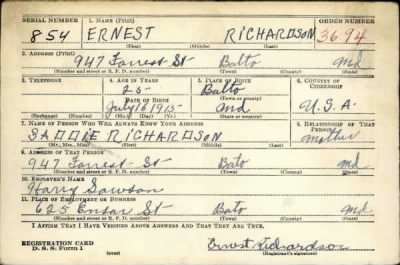 SERIAL NUMBER 1. NAME (Print) ORDER NUMBER
854 ERNEST RICHARDSON 3694
(First) (Middle) (Last)
2. ADDRESS (Print)
947 Forrest St Balto Md
(Number and street or R. F. D. number) (Town) (County) (State)
3. TELEPHONE 4. AGE IN YEARS 5. PLACE OF BIRTH 6. COUNTRY OF CITIZENSHIP
25 Balto
DATE OF BIRTH (Town or county)
July 16 1915 Md U.S.A.
(Exchange) (Number) (Mo.) (Day) (Yr.) (State or country)
7. NAME OF PERSON WHO WILL ALWAYS KNOW YOUR ADDRESS 8. RELATIONSHIP OF THAT PERSON
SADDIE RICHARDSON Mother
(Mr., Mrs., Miss) (First) (Middle) (Last)
9. ADDRESS OF THAT PERSON
947 Forrest St Bato Md
(Number and street or R. F. D. number) (Town) (County) (State)
10. EMPLOYER'S NAME
Harry
11. PLACE OF EMPLOYMENT OR BUSINESS
625 Ensor St Bato Md
(Number and street or R. F. D. number) (Town) (County) (State)
I AFFIRM THAT I HAVE VERIFIED ABOVE ANSWERS AND THAT THEY ARE TRUE.
REGISTRATION CARD
D. S. S. Form 1. (over) Ernest Richardson
(Registrant's signature)